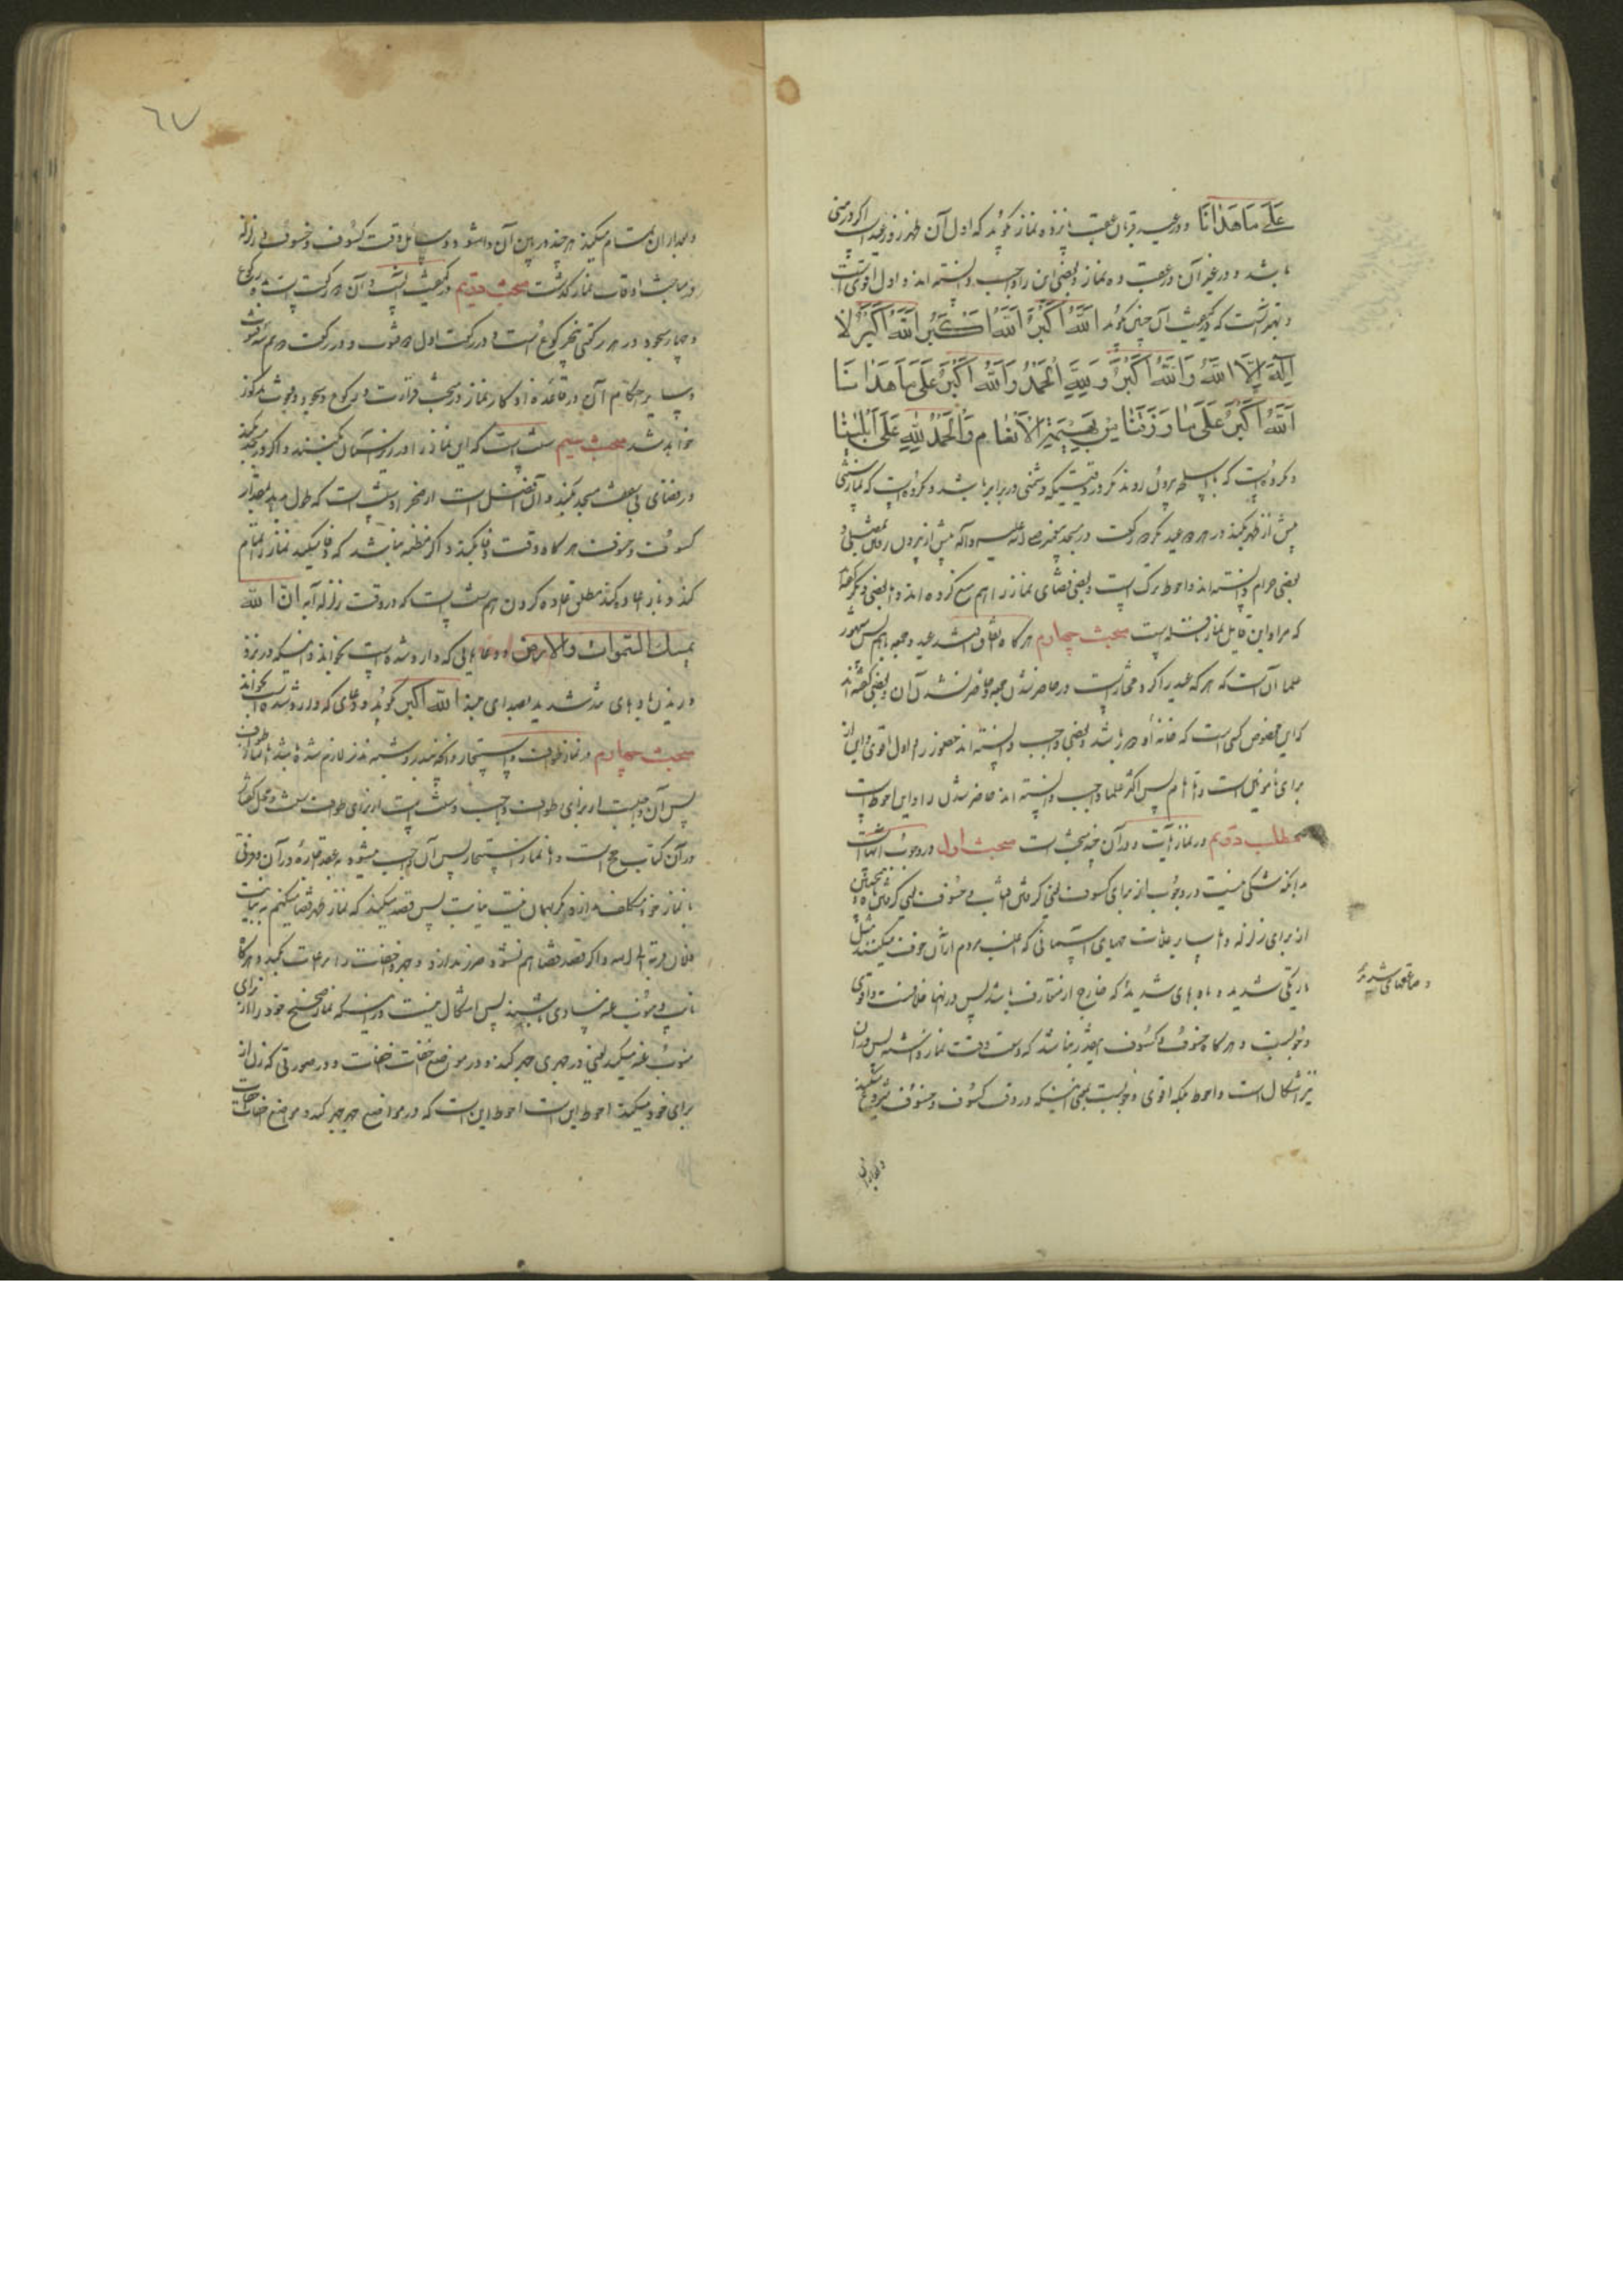 عَلَى مَا هَدَانَا و در عید قربان عقب پانزده نماز گوید که اول آن ظهر روز عید است اگر در منی
باشد و در غیر آن در عقب ده نماز و بعضی این را واجب دانسته اند و اول اقوی است
و بهتر آنست که کیفیت آن چنین گوید اَللّٰهُ اَكْبَرُ اَللّٰهُ اَكْبَرُ اَللّٰهُ اَكْبَرُ لَا
اِلٰهَ اِلَّا اللّٰهُ وَاللّٰهُ اَكْبَرُ وَلِلّٰهِ الْحَمْدُ وَاللّٰهُ اَكْبَرُ عَلَى مَا هَدَانَا
اَللّٰهُ اَكْبَرُ عَلَى مَا رَزَقَنَا مِنْ بَهِيمَةِ الْاَنْعَامِ وَالْحَمْدُ لِلّٰهِ عَلَى مَا اَبْلَانَا
و مکروه است که با اسلحه بیرون روند مگر در وقتیکه دشمنی در برابر باشد و مکروه است که نماز سنتی
پیش از ظهر بکند در هر دو عید مگر دو رکعت در مسجد پیغمبر صلی الله علیه و آله پیش از بیرون رفتن بمصلی و
بعضی حرام دانسته اند و احوط ترک است و بعضی قضای نماز را هم منع کرده اند و بعضی دیگر گفته
که مراد این قایل نماز نافله است مبحث چهارم هر گاه اتفاق افتد عید و جمعه با هم پس مشهور
علما آن است که هر که عید را کرد مختار است در حاضر شدن جمعه و حاضر نشدن آن و بعضی گفته اند
که این مخصوص کسی است که خانه او دور باشد و بعضی واجب دانسته اند حضور را و اول اقوی و این از
برای مأمومین است و اما امام پس اکثر علما واجب دانسته اند حاضر شدن را و این احوط است
مطلب دویم در نماز آیت و در آن چند مبحث است مبحث اول در وجوب آنهاست
بدانکه شکی نیست در وجوب از برای کسوف یعنی گرفتن آفتاب و خسوف یعنی گرفتن ماه و همچنین
از برای زلزله و اما سایر علامتهای آسمانی که اغلب مردم از آن خوف میکنند مثل
تاریکی شدید و بادهای شدید که خارج از متعارف باشد پس در آنها خلافست و اقوی
وجوبست و هر گاه خسوف و کسوف بقدری نباشد که وسعت وقت نماز داشته پس در آن
نیز اشکال است و احوط بلکه اقوی وجوبست بمعنی اینکه در وقت کسوف و خسوف شروع میکند
و صاعقهای شدیده
و بعد از آن
٦٧
و بعد از آن تمام میکند هر چند در بین آن وا شود و مسایل وقت کسوف و خسوف و زلزله
در مباحث اوقات نماز گذشت مبحث دویم در کیفیت آنست و آن دو رکعت است ده رکوع
و چهار سجود در هر رکعتی پنج رکوع است و در رکعت اول دو قنوت و در رکعت دوم سه قنوت
و سایر احکام آن در قاعده اذکار نماز در مبحث قرائت و رکوع و سجود و قنوت مذکور
خواهد شد مبحث سیم سنت است که این نماز را در زیر آسمان بکنند و اگر در مسجد بکنند
در فضای بی سقف مسجد بکنند و آن افضل است از صحرا و سنت است که طول بدهد بمقدار
کسوف و خسوف هر گاه وقت وفا بکند و اگر مظنه نباشد که وفا میکند نماز را تمام
کند و بار اعاده کند مطلق اعاده کردن هم سنت است که در وقت زلزله آیه اِنَّ اللّٰهَ
يُمْسِكُ السَّمٰوَاتِ وَالْاَرْضَ و دعاهایی که وارد شده است بخواند و اینکه در نزد
وزیدن بادهای تند شدید بصدای بلند اللّٰه اکبر گوید و دعای که وارد شده است بخواند
مبحث چهارم در نماز طواف و استیجار و آنچه بنذر و شبه نذر لازم شده باشد اما نماز طواف
پس آن واجبست از برای طواف واجب و سنت است از برای طواف سنت و محل گفتار
در آن کتاب حج است و اما نماز استیجار پس آن واجب میشود به عقد اجاره و در آن فرقی
با نماز خود مکلف ندارد مگر همان نیت نیابت پس قصد میکند که نماز ظهر قضا میکنم به نیابت
فلان قربة الی الله و اگر قصد قضا هم نشود ضرر ندارد و جهر و اخفات را مراعات بکند و هر گاه
نایب و منوب عنه مساوی باشند پس اشکال نیست در اینکه نماز صحیح خود را از برای
منوب عنه میکند یعنی در جهری جهر کند و در موضع اخفات اخفات و در صورتی که زن از
برای خود میکند احوط این است احوط این است که در مواضع جهر جهر کند و مواضع اخفات اخفات